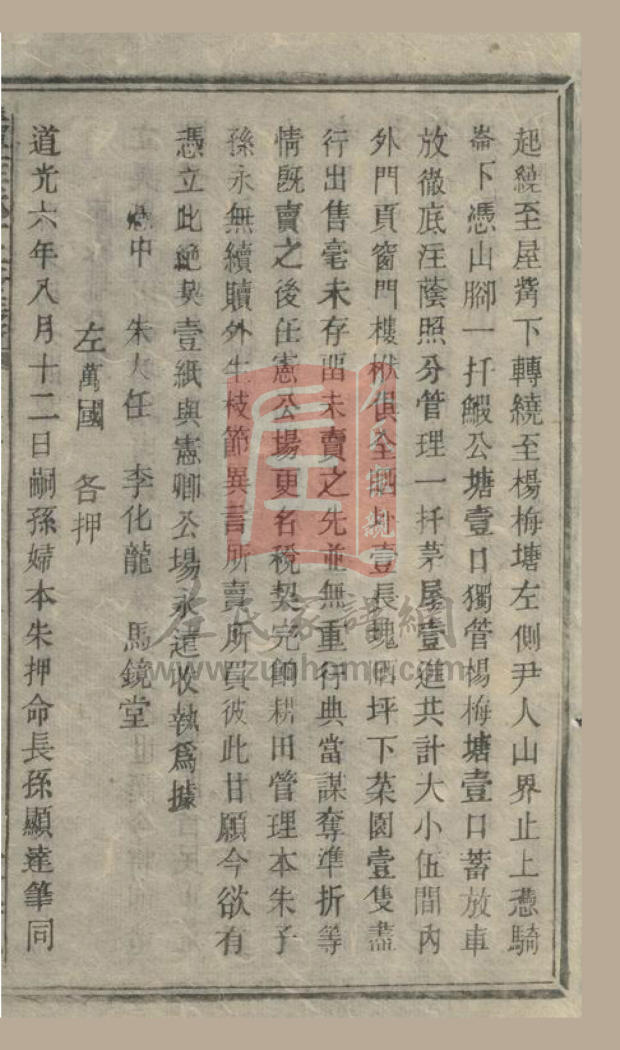 起繞至屋背下轉繞至楊梅塘左側尹人山界止上憑騎
崙下憑山腳一扦鰕公塘壹口獨管楊梅塘壹口蓄放車
放徹底汪蔭照分管理一扦茅屋壹進共計大小伍間內
外門頁窗門樓栿俱全晒坪壹長塊晒坪下菜園壹隻盡
行出售毫未存畱未賣之先並無重行典當謀奪準折等
情旣賣之後任憲公場更名稅契完餉耕田管理本朱子
孫永無續贖外生枝節異言所賣所買彼此甘願今欲有
憑立此絕契壹紙與憲卿公場永遠收執爲據
憑中 朱大任 李化龍 馬鏡堂
左萬國 各押
道光六年八月十二日嗣孫婦本朱押命長孫顯達筆同
左氏家譜網
www.zuohome.com